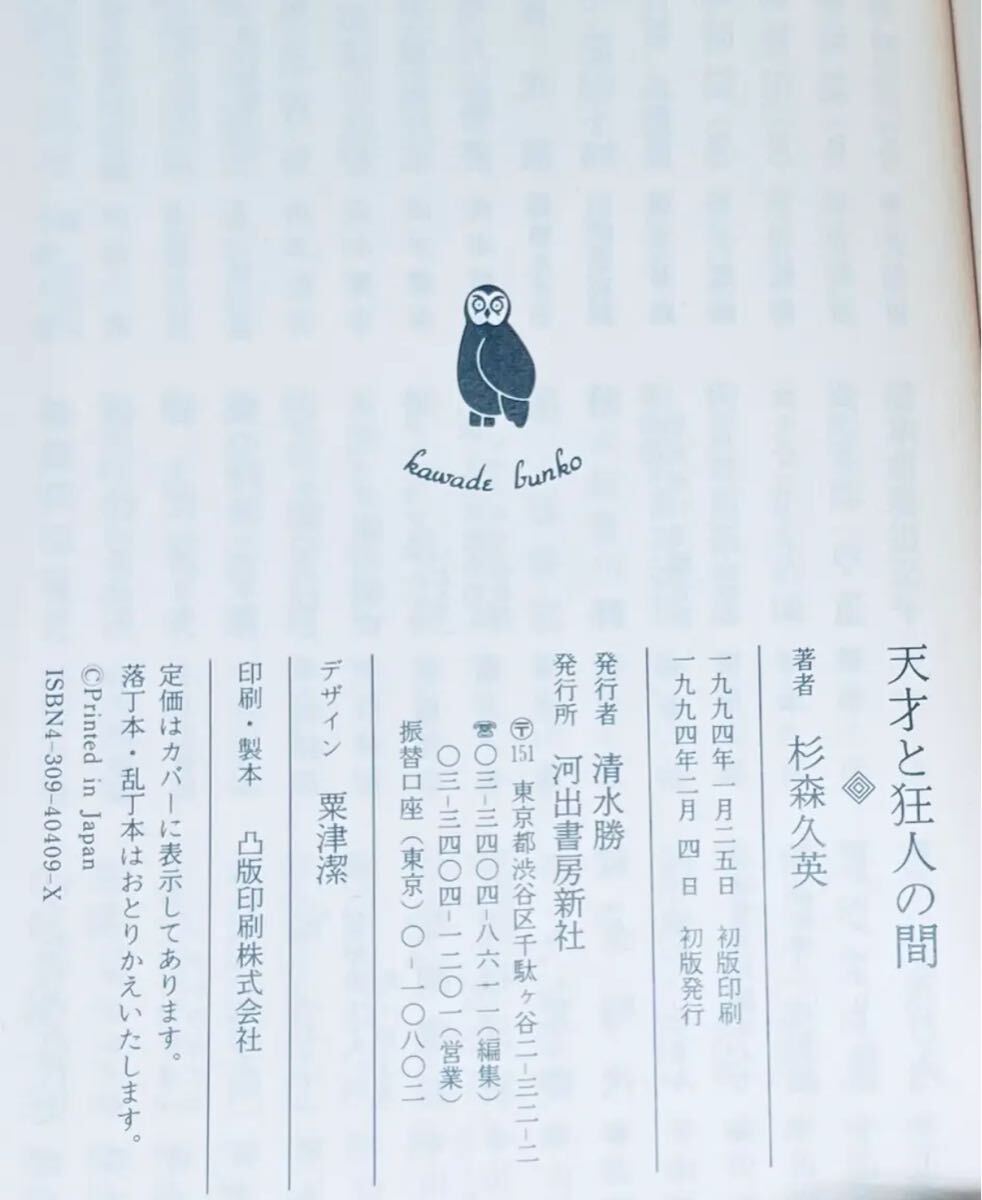 kawade bunko
天才と狂人の間
著者 杉森久英
一九九四年一月二五日 初版印刷
一九九四年二月 四日 初版発行
発行者 清水勝
発行所 河出書房新社
〒151 東京都渋谷区千駄ヶ谷二-三二-二
☎〇三-三四〇四-八六一一(編集)
〇三-三四〇四-一二〇一(営業)
振替口座(東京)〇-一〇八〇二
デザイン 粟津潔
印刷・製本 凸版印刷株式会社
定価はカバーに表示してあります。
落丁本・乱丁本はおとりかえいたします。
©Printed in Japan
ISBN4-309-40409-X